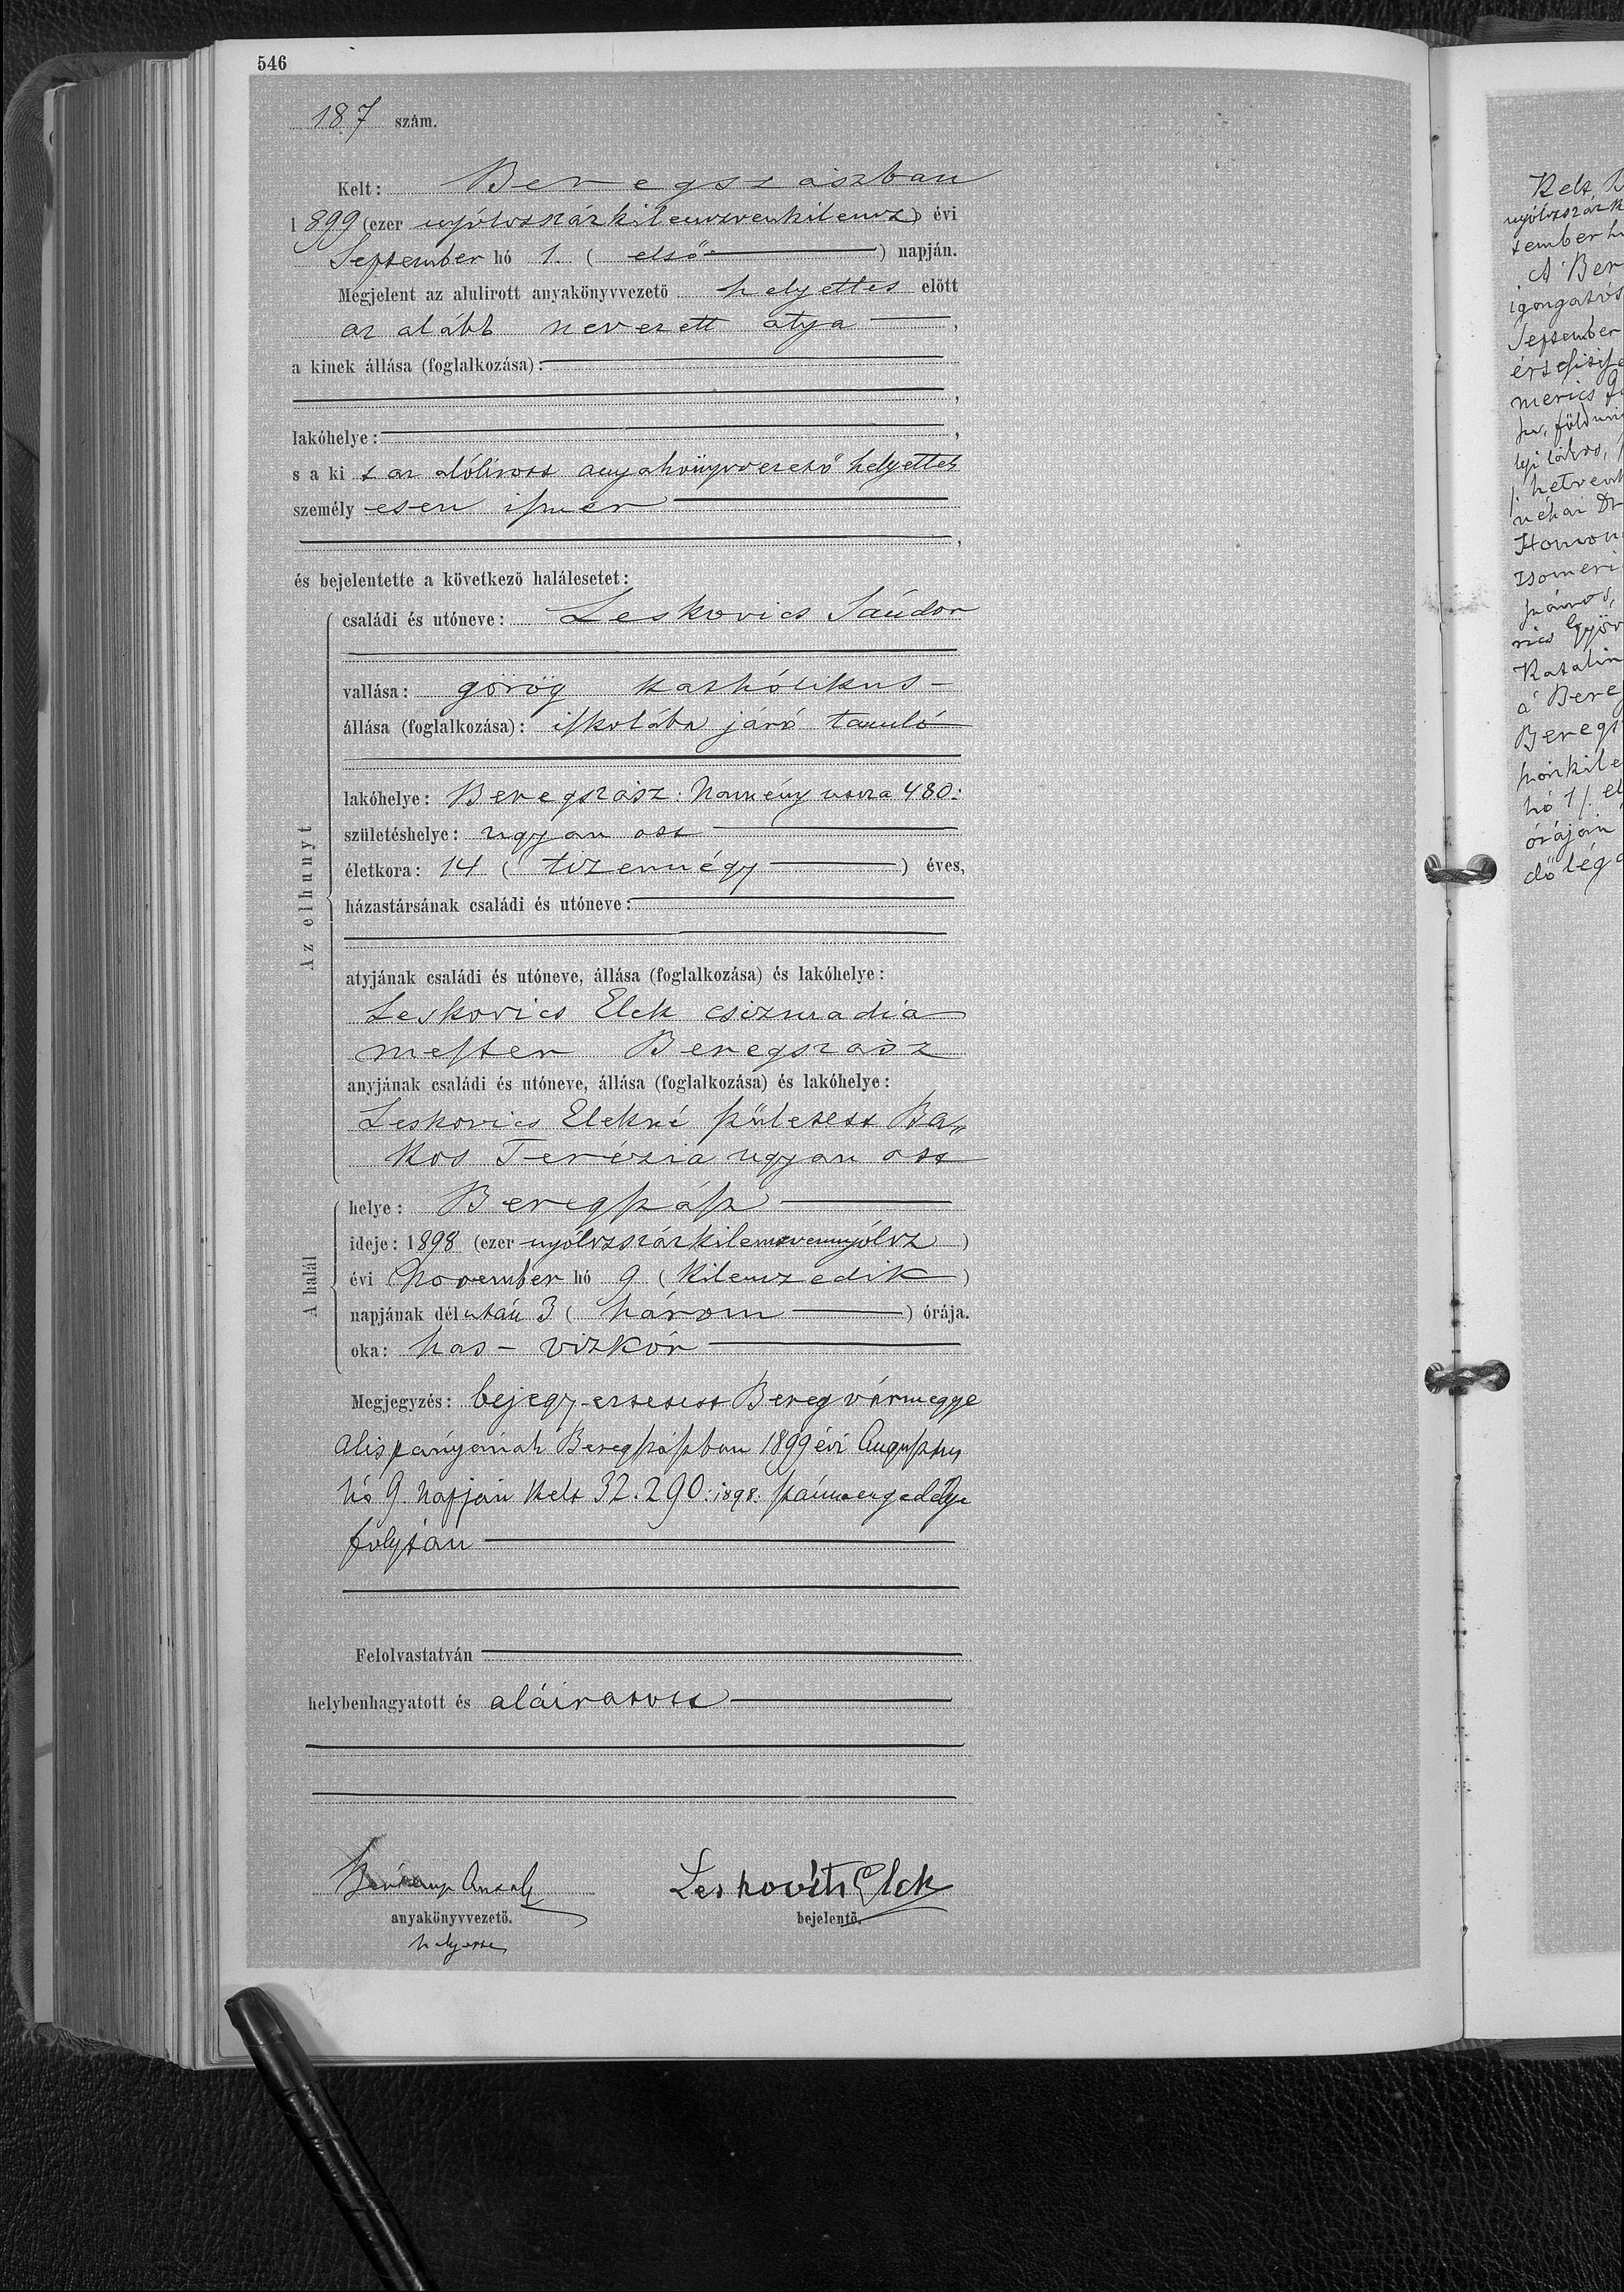 546
187 szám.
Kelt: Beregszászban
1899 (ezer nyólcszázkilenczvenkilencz) évi
September hó 1. ( első ) napján.
Megjelent az alulirott anyakönyvvezető helyettes előtt
az alább nevezett atya,
a kinek állása (foglalkozása):
,
lakóhelye: ,
s a ki t az alólirott anyakönyvvezető helyettes
személyesen ismer
,
és bejelentette a következő halálesetet:
Az elhunyt
családi és utóneve: Leskovics Sándor
vallása: görög katholikus
állása (foglalkozása): iskolába járó tanuló
lakóhelye: Beregszász. Namény 480.
születéshelye: ugyan ott
életkora: 14 ( tizennégy ) éves,
házastársának családi és utóneve:
atyjának családi és utóneve, állása (foglalkozása) és lakóhelye:
Leskovics Elek csizmadia
mester Beregszász
anyjának családi és utóneve, állása (foglalkozása) és lakóhelye:
Leskovics Elekné született Ba„
kos Terézia ugyan ott
A halál
helye: Beregszász
ideje: 1898 (ezer nyólczszázkilenczvennyólcz )
évi November hó 9 ( kilenczedik )
napjának délután 3 ( három ) órája.
oka: has - vizkór
Megjegyzés: bejegyeztetett Beregvármegye
alispányának Beregszászban 1899 évi Augusztus
hó 9. napján kelt 32.290:1898. számu engedélye
folytán
Felolvastatván
helybenhagyatott és aláiratott
Leskovits Elek
anyakönyvvezető. bejelentő.
helyettes
September
Katalin